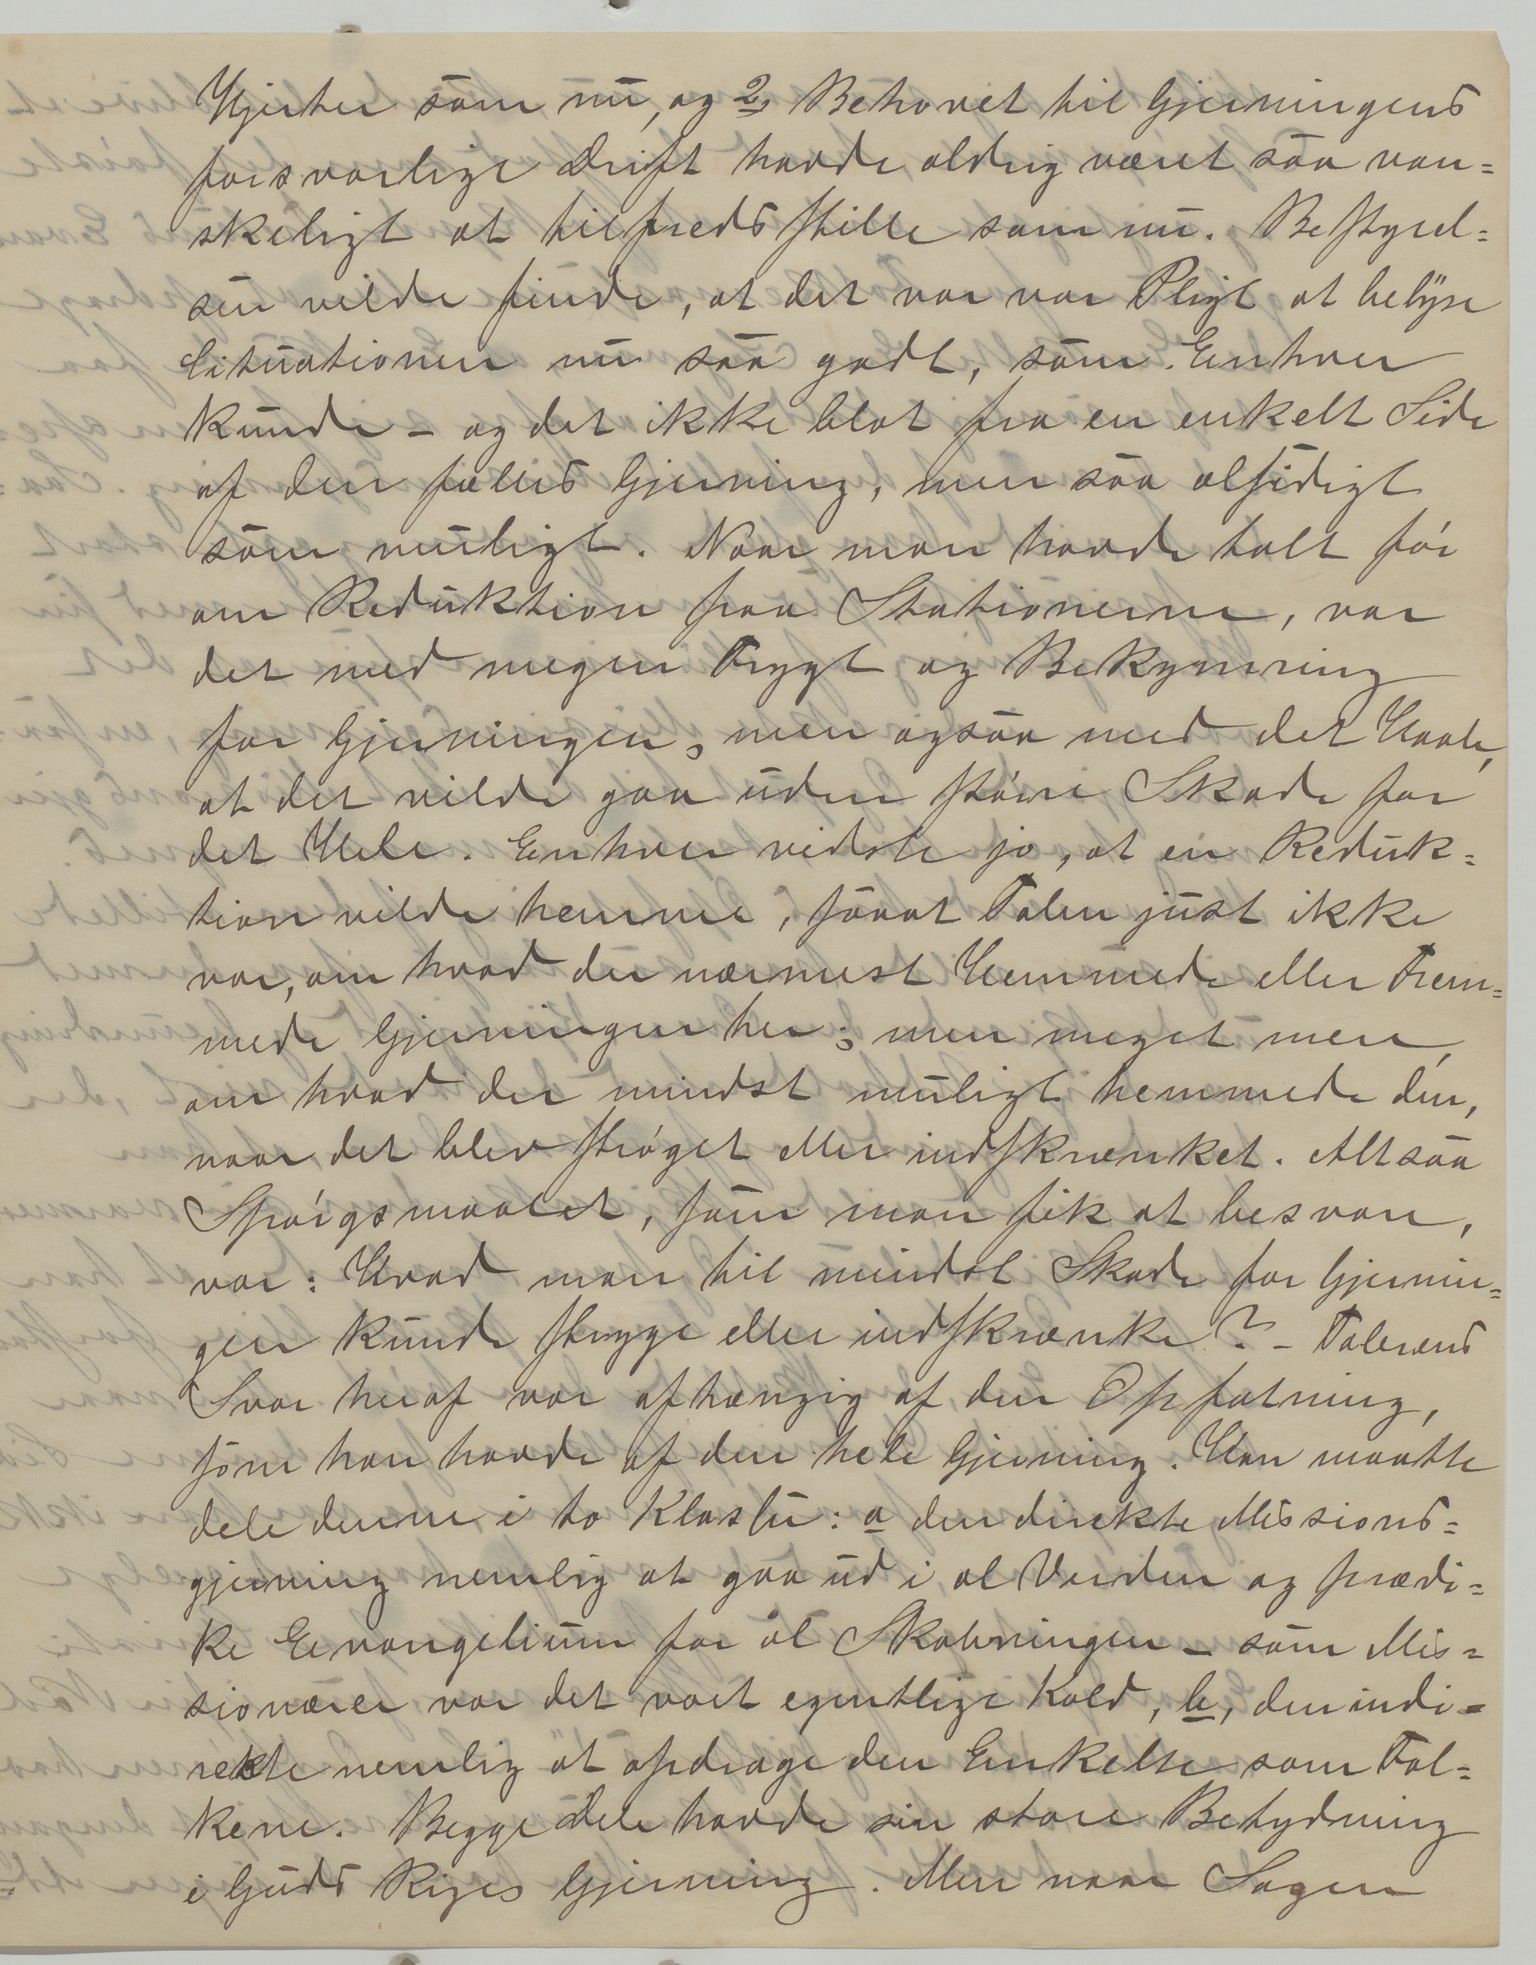 Hjerter som nu, og 2, Behovet til Gjerningens
forsvarlige Drift havde aldrig været saa van=
skeligt at tilfredsstille som nu. Bestyrel=
sen vilde finde, at det var vor Pligt at belyse
Situationen nu saa godt, som Enhver
kunde – og det ikke blot fra en enkelt Side
af den fælles Gjerning, men saa alsidigt
som muligt. Naar man havde talt før
om Reduktion paa Stationerne, var
det med megen Frygt og Bekymring
for Gjerningen; men ogsaa med det Haab,
at det vilde gaa uden større Skade for
det Hele. Enhver vidste jo, at en Reduk=
tion vilde hemme, saaat Talen just ikke
var, om hvad der nærmest Hemmede eller Frem=
mede Gjerningen her; men meget mere,
om hvad der mindst muligt hemmede den,
naar det blev strøget eller indskrænket. Altsaa
Spørgsmaalet, som man fik at besvare,
var: Hvad man til mindst Skade for Gjernin=
gen kunde stryge eller indskrænke? – Talerens
Svar heraf var afhængig af den Opfatning,
som han havde af den hele Gjerning. Han maatte
dele denne i to Klasser: a den direkte Missions=
gjerning nemlig at gaa ud i al Verden og prædi=
ke Evangelium for al Skabningen – som Mis=
sionærer var det vort egentlige Kald, b, den indi=
rekte nemlig at opdrage den Enkelte som Fol=
kene. Begge Dele havde sin store Betydning
i Guds Riges Gjerning. Men naar Sagen